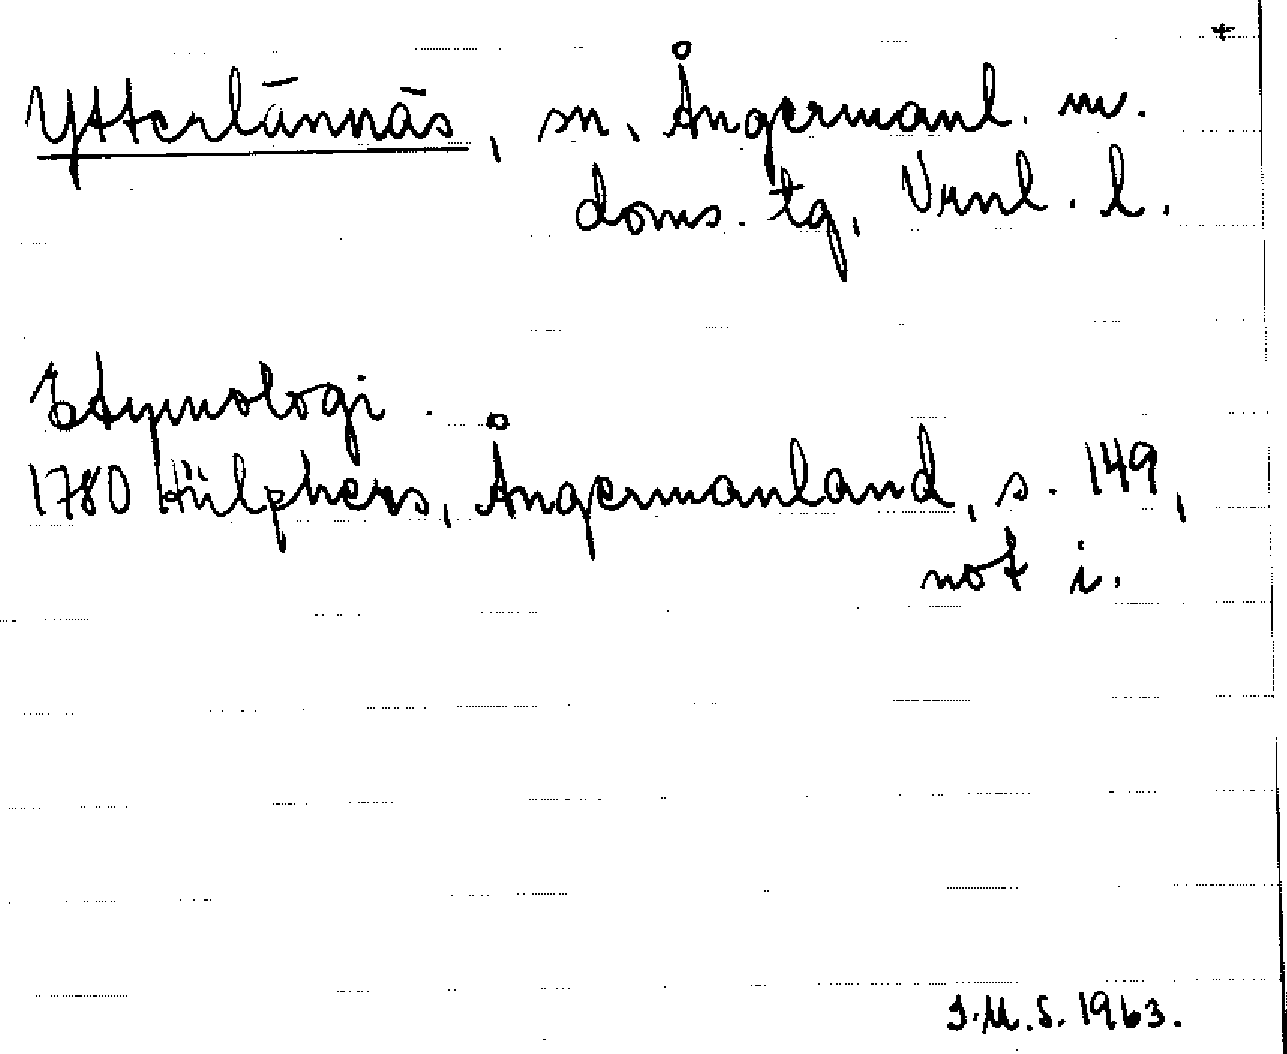 +
Ytterlännäs, sn, Ångermanl. m.
doms. tg, Vrnl. l.
Etymologi.
1780 Hülphers, Ångermanland, s. 149,
not i.
I.M.S. 1963.